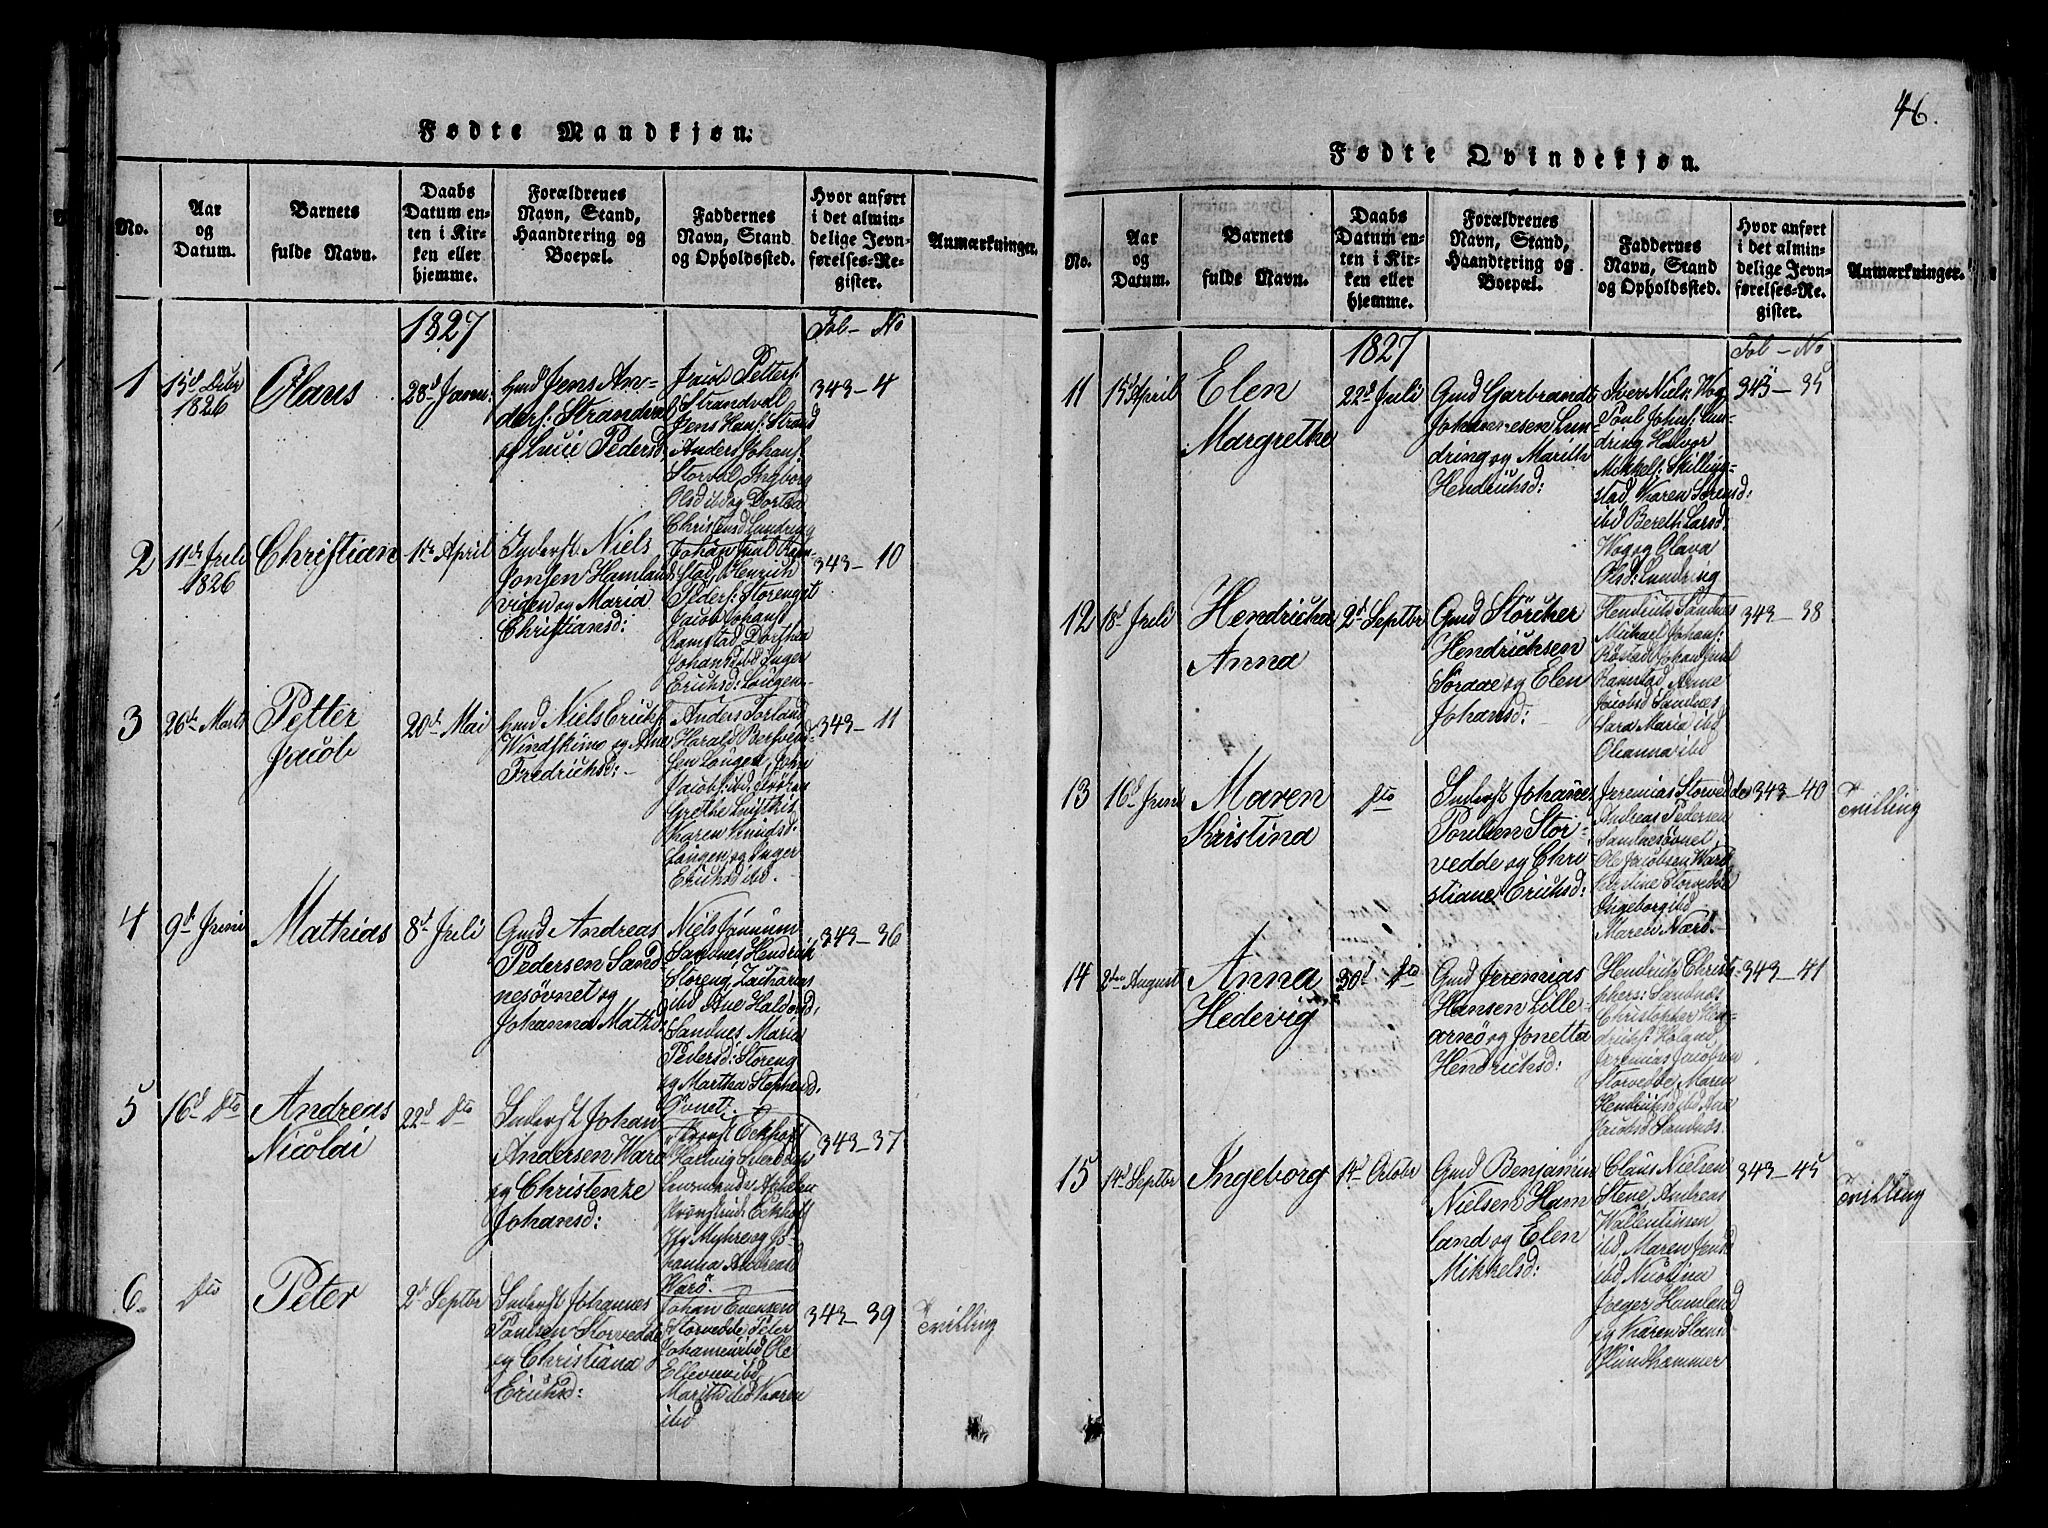 46.
Fødte Mandkjøn.
No.
Aar
og
Datum.
Barnets
fulde Navn.
Daabs
Datum en-
ten i Kir-
ken eller
hjemme.
Forældrenes
Navn, Stand,
Haandtering og
Boepæl.
Faddernes
Navn, Stand
og Opholdssted.
Hvor anført
i det almin-
delige Jevn-
førelses-Re-
gister.
Anmærkninger.
1827
Fol - No
1
15d Decbr
1826
Olaus
28d Januar:
Gmd Jens An-
ders: Strandval
og Lucie Pedersd
Jacob Petters:
Strandval
Jens Hans: Strand
Anders Johans:
Storval, Ingborg
Olsd ibd og Dorthea
Christensd Lundring
343 - 4
2
11de Juli
1826
Christian
1ste April
Inderst Niels
Jonsen Hamland
vigen og Maria
Christiansd:
Johan Juul Ram-
stad, Henrich
Peders: Storenget
Jacob Johans:
Ramstad Dorthea
Johansd ibd Inger
Erichsd: Lougen
343 - 10
3
26de Marts
Petter
Jacob
20de Mai
Gmd Niels Erichs:
Windskimo og Ane
Fredrichsd: -
Anders Forland
Harald
sen Lougen, John
Jacobs: ibd Frøken
Grethe
Karen Knudsd:
Lougen, og Inger
Erichsd ibd. -
343 - 11
4
9d Juni
Mathias
8d Juli
Gmd Andreas
Pedersen Sand-
nesøvnet og
Johanna Mathsd:
Niels
Sandnes Hendrik
Storeng, Zacharias
ibd Ane Haldorsd:
Sandnes, Maria
Pedersd: Storeng
og Martha Stephensd.
Øvnet.
343 - 36
5
16d dto
Andreas
Nicolai
22d dto
Inderst Johan
Andersen Warø
og Christenze
Johansd:
Eckhoff
Hartvig Sverdrup
Eckhoff
Myhre og Jo-
hanna Andreasd
Warø.
343 - 37
6
dto
Peter
2d Septbr
Inderst Johannes
Paulsen Storvedde
og Christiana
Erichsd:
Johan Evensen
Storvedde Peter
Johansen ibd Ole
Ellevsen ibd,
Marith ibd Karen
ibd
343 - 39
Tvilling
Fødte Qvindekjøn.
No.
Aar
og
Datum.
Barnets
fulde Navn.
Daabs
Datum en-
ten i Kir-
ken eller
hjemme.
Forældrenes
Navn, Stand,
Haandtering og
Boepæl.
Faddernes
Navn, Stand
og Opholdssted.
Hvor anført
i det almin-
delige Jevn-
førelses-Re-
gister.
Anmærkninger.
1827
Fol - No
11
15d April
Elen
Margrethe
22d Juli
Gmd Garbrandt
Johannesen Lun-
dring og Marith
Hendrichsd:
Iver Niels: Wog
Poul Johns: Lun-
dring Halvor
Mikkels: Skilling-
stad, Karen Sørensd:
ibd Bereth Larsd:
Wog og Olava
Olsd: Lundring
343 - 35
12
18d Juli
Hendricha
Anna
2d Septbr
Gmd Störcher
Hendrichsen
Sørdae og Elen
Johansd:
Hendrich Sandnes
Michael Johans:
Røstad Johan Juul
Ramstad Arne
Jacobsd Sandnes
Sara Maria ibd
Oleanna ibd
343 - 38
13
16d Juni
Maren
Kristina
dto
Inderst Johanes
Poulsen Stor-
vedde og Chri
stiane Erichsd:
Jeremias Storvedde
Andreas Pedersen
Sandnesøvnet
Ole Jacobsen Warø
Caroline Storvedde
Ingeborg ibd
Maren Warø. -
343 - 40
Tvilling
14
2den August
Anna
Hedevig
30d dto
Gmd Jeremias
Hansen Lille-
arnø og Jonetta
Hendrichsd:
Hendrich Christ-
phers: Sandnes
Christopher Hen-
drichs: Holand,
Jeremias Jacobsen
Storvedde, Maren
Hendriksd ibd Ane
Jacobsd Sandnes.
343 - 41
15
14d Septbr
Ingeborg
14d Octobr
Gmd Benjamin
Nielsen Ham
land og Elen
Mikkelsd:
Claus Nielsen
Stene Andreas
Wallentinsen
ibd, Maren Jensd
ibd Nicolina
Joeger Hamland
og Karen Steensd
Flundhammer
343 - 45
Tvilling